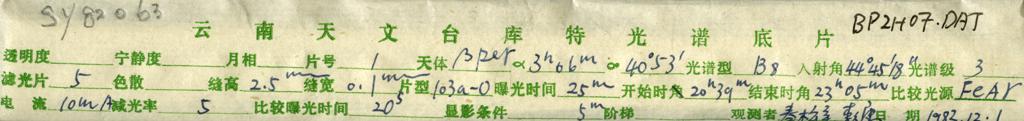 sy82063
云南天文台库特光谱底片 BP2H07.DAT
透明度 宁静度 月相 片号 1 天体 βper α 3ʰ06ᵐ δ 40°53′ 光谱型 B8 入射角 44°45′18″ 光谱级 3
滤光片 5 色散 缝高 2.5ᵐᵐ 缝宽 0.1ᵐᵐ 片型 103a-O 曝光时间 25ᵐ 开始时角 20ʰ39ᵐ 结束时角 23ʰ05ᵐ 比较光源 FeAr
电流 10mA 减光率 5 比较曝光时间 20ˢ 显影条件 5ᵐ 阶梯 观测者 日期 1982.12.1